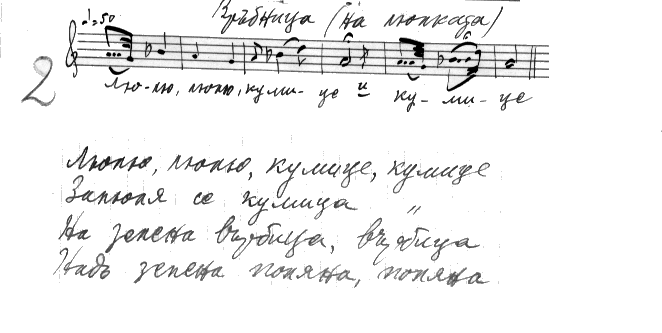 ♩=50 Връбница (на люлката)
2
Лю-лю, люлю, куми-це и ку-ми-це
Люлю, люлю, кумице, кумице
Залюля се кумица "
На зелена върбица, върбица
Надъ зелена поляна, поляна